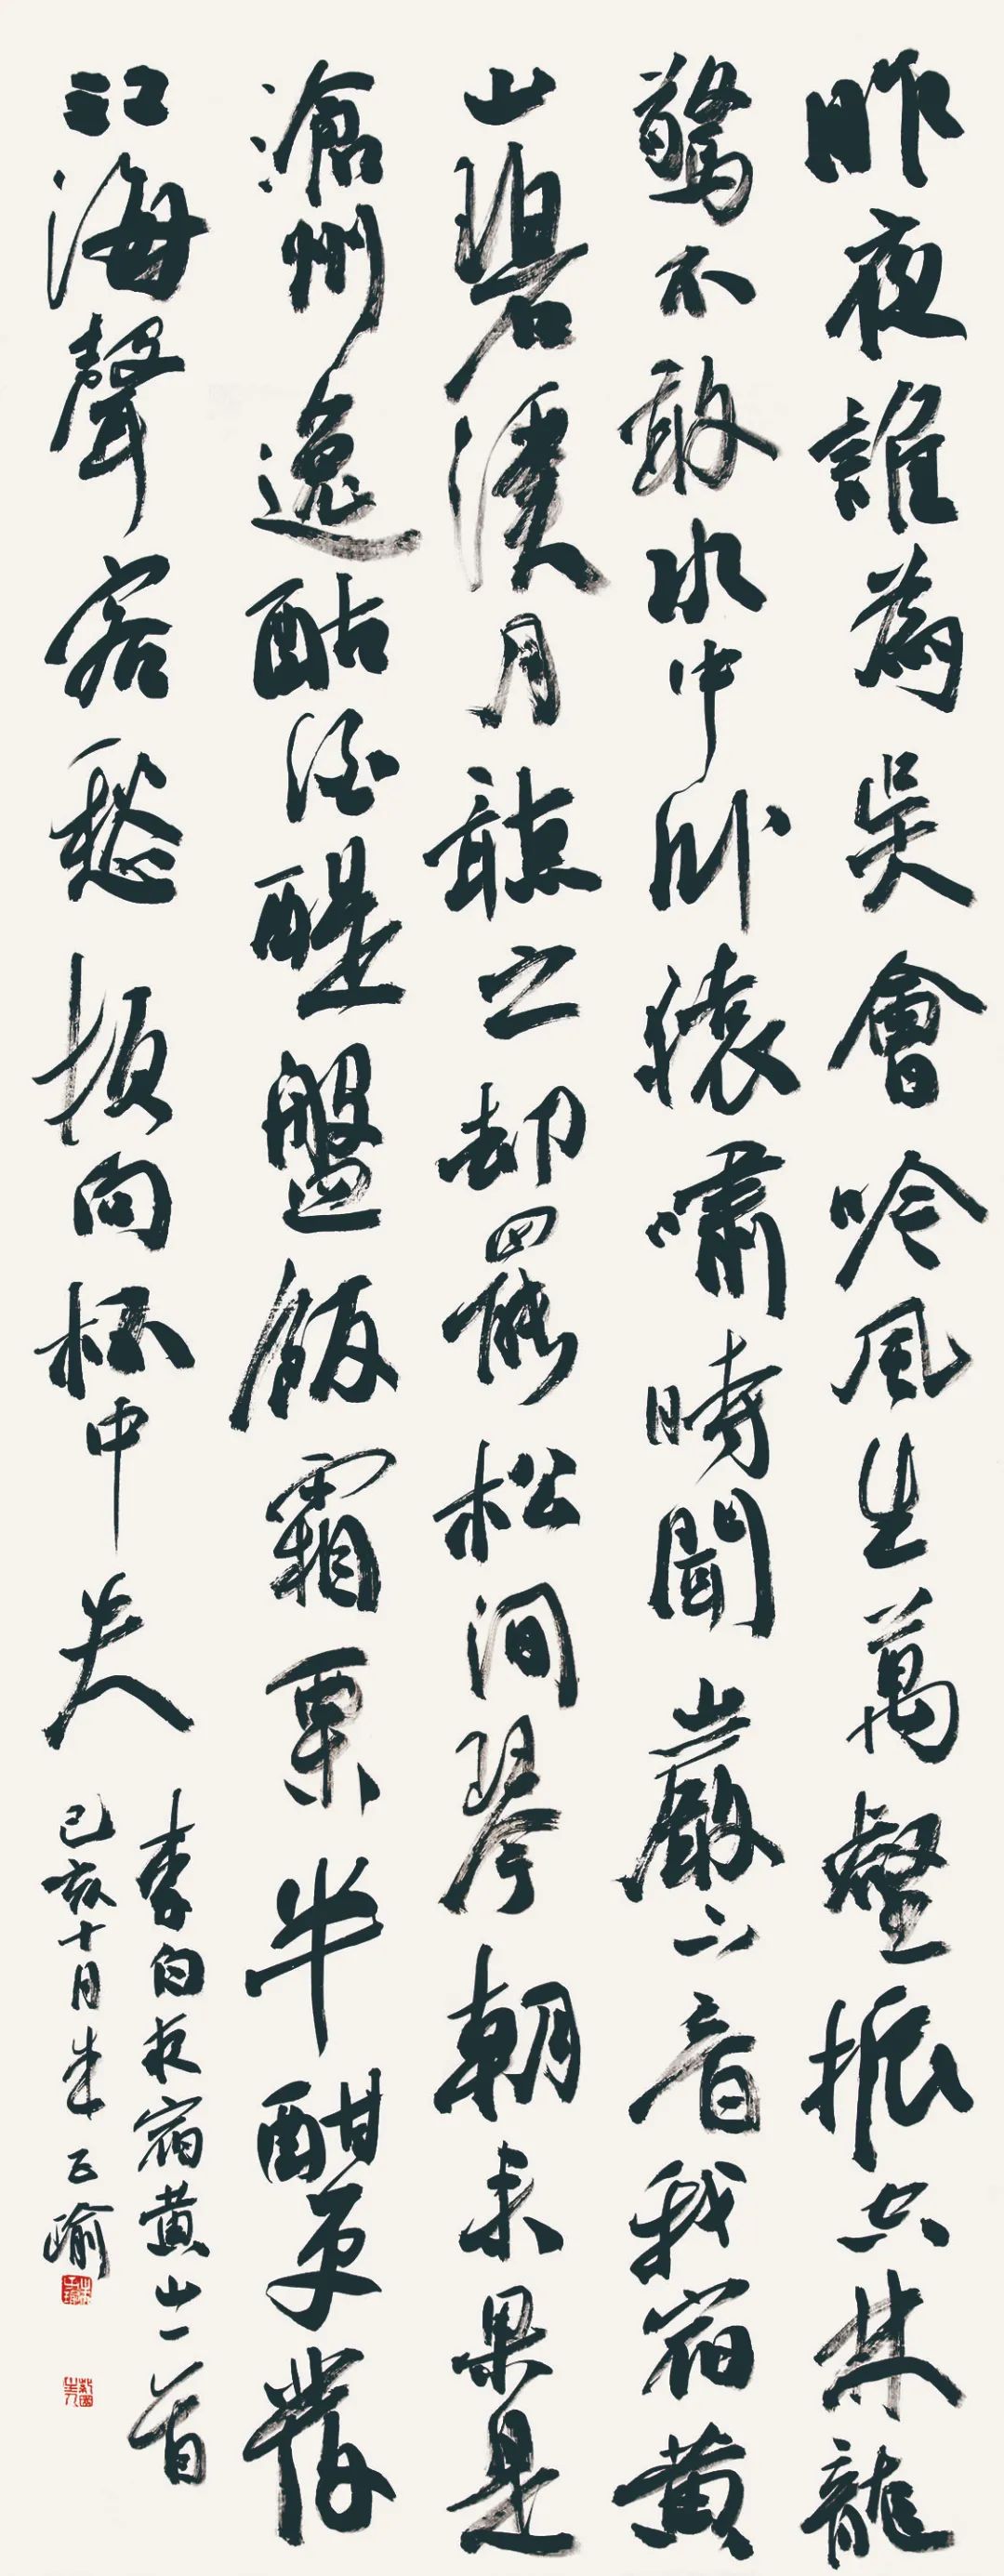 昨夜誰為吳會吟風生萬壑振空林龍
驚不敢水中臥猿嘯時聞巖下音我宿黃
山碧溪月聽之却罷松澗琴朝来果是
滄州逸酤酒醍盤飯霜栗半酣更發
江海聲客愁頓向杯中失
李白夜宿黃山一首
己亥十月朱